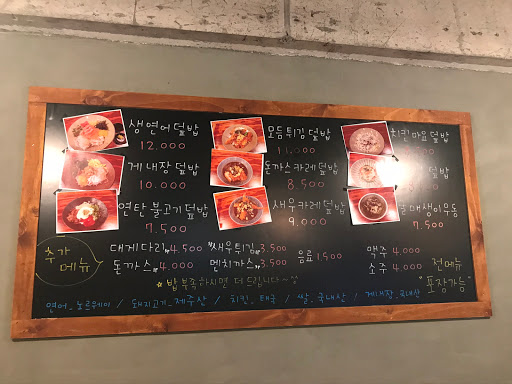 생연어덮밥 모듬튀김덮밥 치킨마요덮밥
12.000 11.000
게내장덮밥 돈까스카레덮밥 덮밥
10.000 8.500
연탄불고기덮밥 새우카레덮밥 매생이우동
7.500 9.000 7.500
추가메뉴
대게다리 4.500 새우튀김 3.500 음료 1.500 맥주 4.000
돈까스 4.000 멘치까스 3.500 소주 4.000
전메뉴
"포장가능"
☆ 밥 부족하시면 더 드립니다~
연어.노르웨이 / 돼지고기.제주산 / 치킨.태국 / 쌀.국내산 / 게내장.국내산